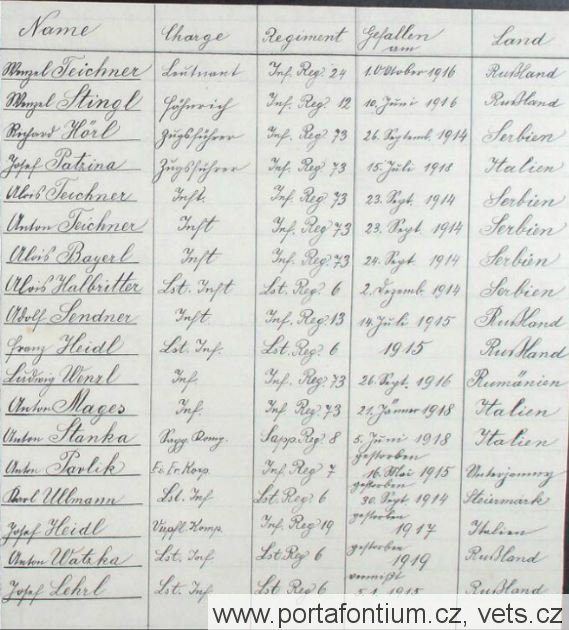 Name Charge Regiment Gefallen am Land
Wenzel Teichner Leutnant Inf. Reg. 24 1. Oktober 1916 Rußland
Wenzel Stingl Fähnrich Inf. Reg. 12 10. Juni 1916 Rußland
Richard Hörl Zugsführer Inf. Reg 73 26. Septemb. 1914 Serbien
Josef Patzina Zugsführer Inf. Reg 73 15. Juli 1918 Italien
Alois Teichner Inft. Inf. Reg 73 23. Sept. 1914 Serbien
Anton Teichner Inft Inf. Reg 73 23. Sept. 1914 Serbien
Alois Bayerl Inft Inf. Reg 73 24. Sept 1914 Serbien
Alois Halbritter Lst. Inft Lst. Reg 6 2. Dezemb. 1914 Serbien
Adolf Sendner Inft. Inf. Reg 13 14. Juli 1915 Rußland
Franz Heidl Lst. Inf. Lst. Reg. 6 1915 Rußland
Ludwig Wenzl Inf. Inf. Reg 73 26. Sept. 1916 Rumänien
Anton Mages Inf. Inf Reg. 73 21. Jänner 1918 Italien
Anton Stanka Sapp. Komp. Sapp. Reg 8 5. Juni 1918 Italien
Anton Pavlik Inf. Reg 7 gestorben 16. Mai 1915
Karl Ullmann Lst. Inf Lst. Reg 6 gestorben 30. Sept 1914 Steiermark
Josef Heidl Komp. Inf. Reg 19 gestorben 1917 Italien
Anton Watzka Lst. Inf Lst Reg 6 gestorben 1919 Rußland
Josef Lehrl Lst. Inf. Lst Reg 6 vermißt 1915 Rußland
www.portafontium.cz, vets.cz